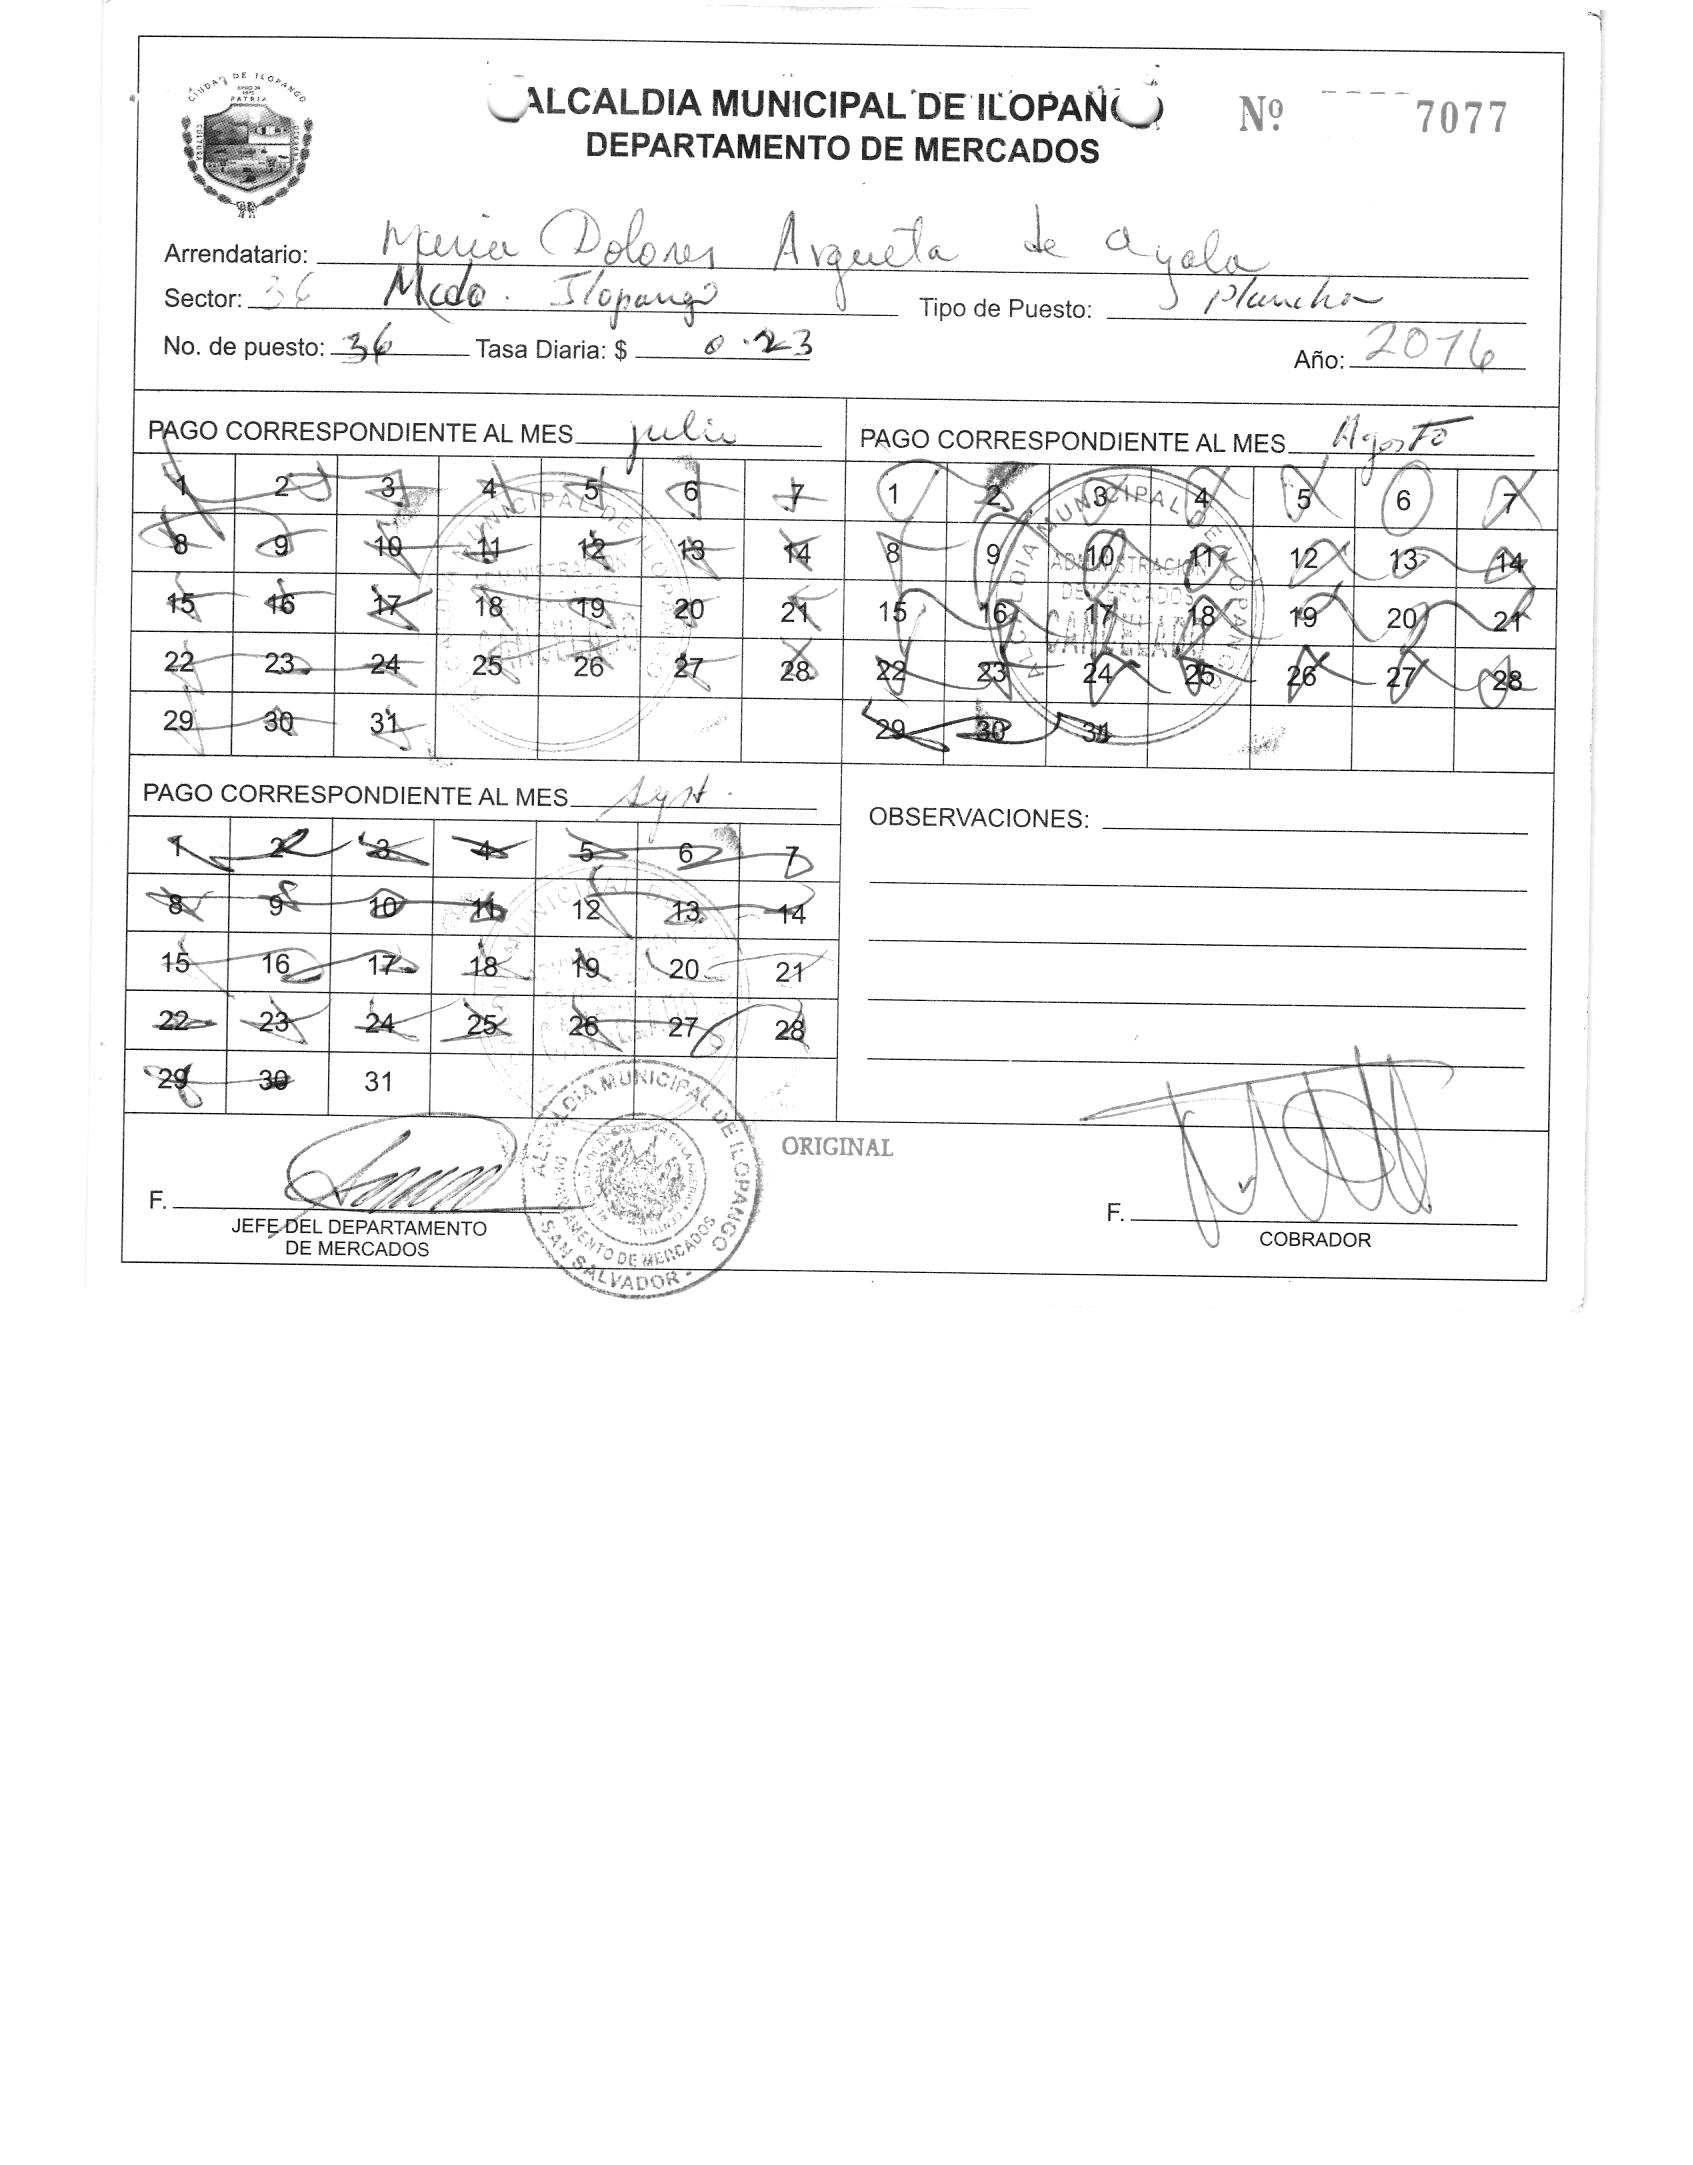 CIUDAD DE ILOPANGO
PATRIA
CULTURA
ALCALDIA MUNICIPAL DE ILOPANGO
Nº 7077
DEPARTAMENTO DE MERCADOS
Arrendatario: Maria Dolores Argueta de Ayala
Sector: 36 Mcdo. Ilopango Tipo de Puesto: plancha
No. de puesto: 36 Tasa Diaria: $ 0.23 Año: 2016
PAGO CORRESPONDIENTE AL MES julio
1 2 3 4 5 6 7
8 9 10 11 12 13 14
15 16 17 18 19 20 21
22 23 24 25 26 27 28
29 30 31
PAGO CORRESPONDIENTE AL MES Agosto
1 2 3 4 5 6 7
8 9 10 11 12 13 14
15 16 17 18 19 20 21
22 23 24 25 26 27 28
29 30 31
ALCALDIA MUNICIPAL DE ILOPANGO
ADMINISTRACION
DE MERCADOS
CANCELADO
PAGO CORRESPONDIENTE AL MES
1 2 3 4 5 6 7
8 9 10 11 12 13 14
15 16 17 18 19 20 21
22 23 24 25 26 27 28
29 30 31
OBSERVACIONES:
ORIGINAL
F.
JEFE DEL DEPARTAMENTO
DE MERCADOS
ALCALDIA MUNICIPAL DE ILOPANGO
DEPARTAMENTO DE MERCADOS
SAN SALVADOR -
F.
COBRADOR